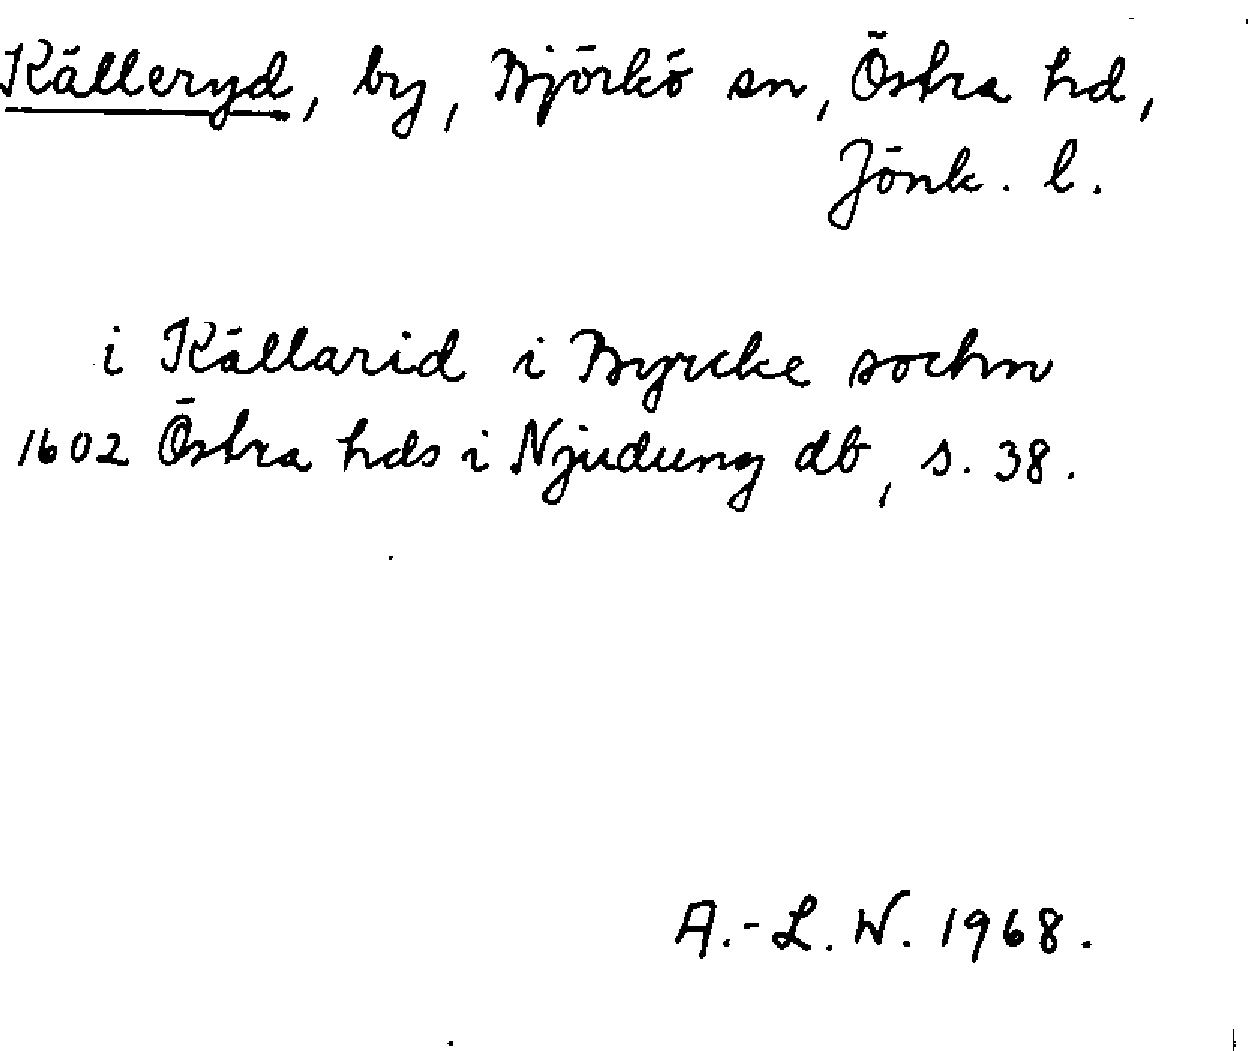 Källeryd, by, Björkö sn, Östra hd,
Jönk. l.
i Källarid i Byrcke sochn
1602 Östra hds i Njudung db, s. 38.
A.-L. W. 1968.